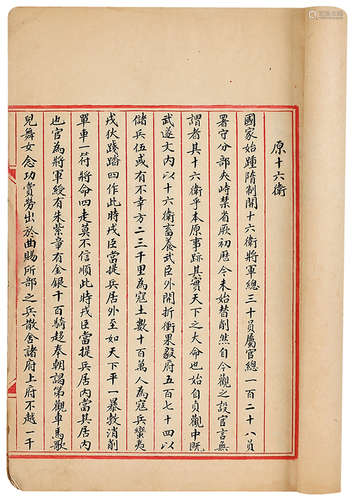 原十六衛
國家始踵隋制開十六衛將軍總三十員屬官總一百二十八員
署守分部夾峙禁省厥初歷今未始替削然自今觀之設官言無
謂者其十六衛乎本原事跡其實天下之大命也始自貞觀中既
武遂文內以十六衛畜養武臣外開折衝果毅府五百七十四以
儲兵伍或有不幸方二三千里為寇土數十百萬人為寇兵蠻夷
戎狄踐踏四作此時戎臣當提兵居外至如天下平一暴勃消削
單車一符將命四走莫不信順此時戎臣當提兵居內當其居內
也官為將軍綬有朱紫章有金銀千百騎趨奉朝謁第觀車馬歌
兒舞女念功賞勞出於曲賜所部之兵散舍諸府上府不越一千